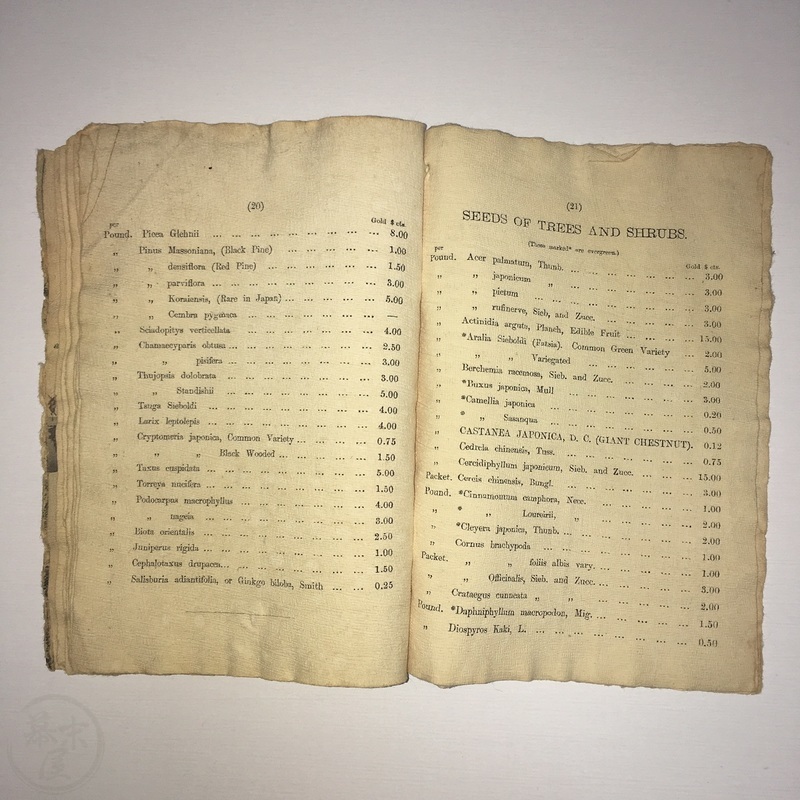 (20)
per Gold $ cts.
Pound. Picea Glehnii ... 8.00
„ Pinus Massoniana, (Black Pine) ... 1.00
„ „ densiflora (Red Pine) ... 1.50
„ „ parviflora ... 3.00
„ „ Koraiensis, (Rare in Japan) ... 5.00
„ „ Cembra pygmaea ... —
„ Sciadopitys verticellata ... 4.00
„ Chamaecyparis obtusa ... 2.50
„ „ pisifera ... 3.00
„ Thujopsis dolobrata ... 3.00
„ „ Standishii ... 5.00
„ Tsuga Sieboldi ... 4.00
„ Larix leptolepis ... 4.00
„ Cryptomeria japonica, Common Variety ... 0.75
„ „ „ Black Wooded ... 1.50
„ Taxus cuspidata ... 5.00
„ Torreya nucifera ... 1.50
„ Podocarpus macrophyllus ... 4.00
„ „ nageia ... 3.00
„ Biota orientalis ... 2.50
„ Juniperus rigida ... 1.00
„ Cephalotaxus drupacea ... 1.50
„ Salisburia adiantifolia, or Ginkgo biloba, Smith ... 0.25
(21)
SEEDS OF TREES AND SHRUBS.
(Those marked* are evergreen.)
per Gold $ cts.
Pound. Acer palmatum, Thunb. ... 3.00
„ „ japonicum „ ... 3.00
„ „ pictum ... 3.00
„ „ rufinerve, Sieb, and Zucc. ... 3.00
„ Actinidia arguta, Planch, Edible Fruit ... 15.00
„ *Aralia Sieboldi (Fatsia). Common Green Variety ... 2.00
„ „ „ Variegated ... 5.00
„ Berchemia racemosa, Sieb. and Zucc. ... 2.00
„ *Buxus japonica, Mull ... 3.00
„ *Camellia japonica ... 0.20
„ * „ Sasanqua ... 0.50
„ CASTANEA JAPONICA, D. C. (GIANT CHESTNUT). 0.12
„ Cedrela chinensis, Tuss. ... 0.75
„ Cercidiphyllum japonicum, Sieb. and Zucc. ... 15.00
Packet. Cercis chinensis, Bungl. ... 3.00
Pound. *Cinnamomum camphora, Nece. ... 1.00
„ * „ Loureirii, „ ... 2.00
„ *Cleyera japonica, Thunb. ... 2.00
„ Cornus brachypoda ... 1.00
Packet. „ „ foliis albis vary. ... 1.00
„ „ Officinalis, Sieb. and Zucc. ... 3.00
„ Crataegus cuneata „ „ ... 2.00
Pound. *Daphniphyllum macropodon, Mig. ... 1.50
„ Diospyros Kaki, L. ... 0.50